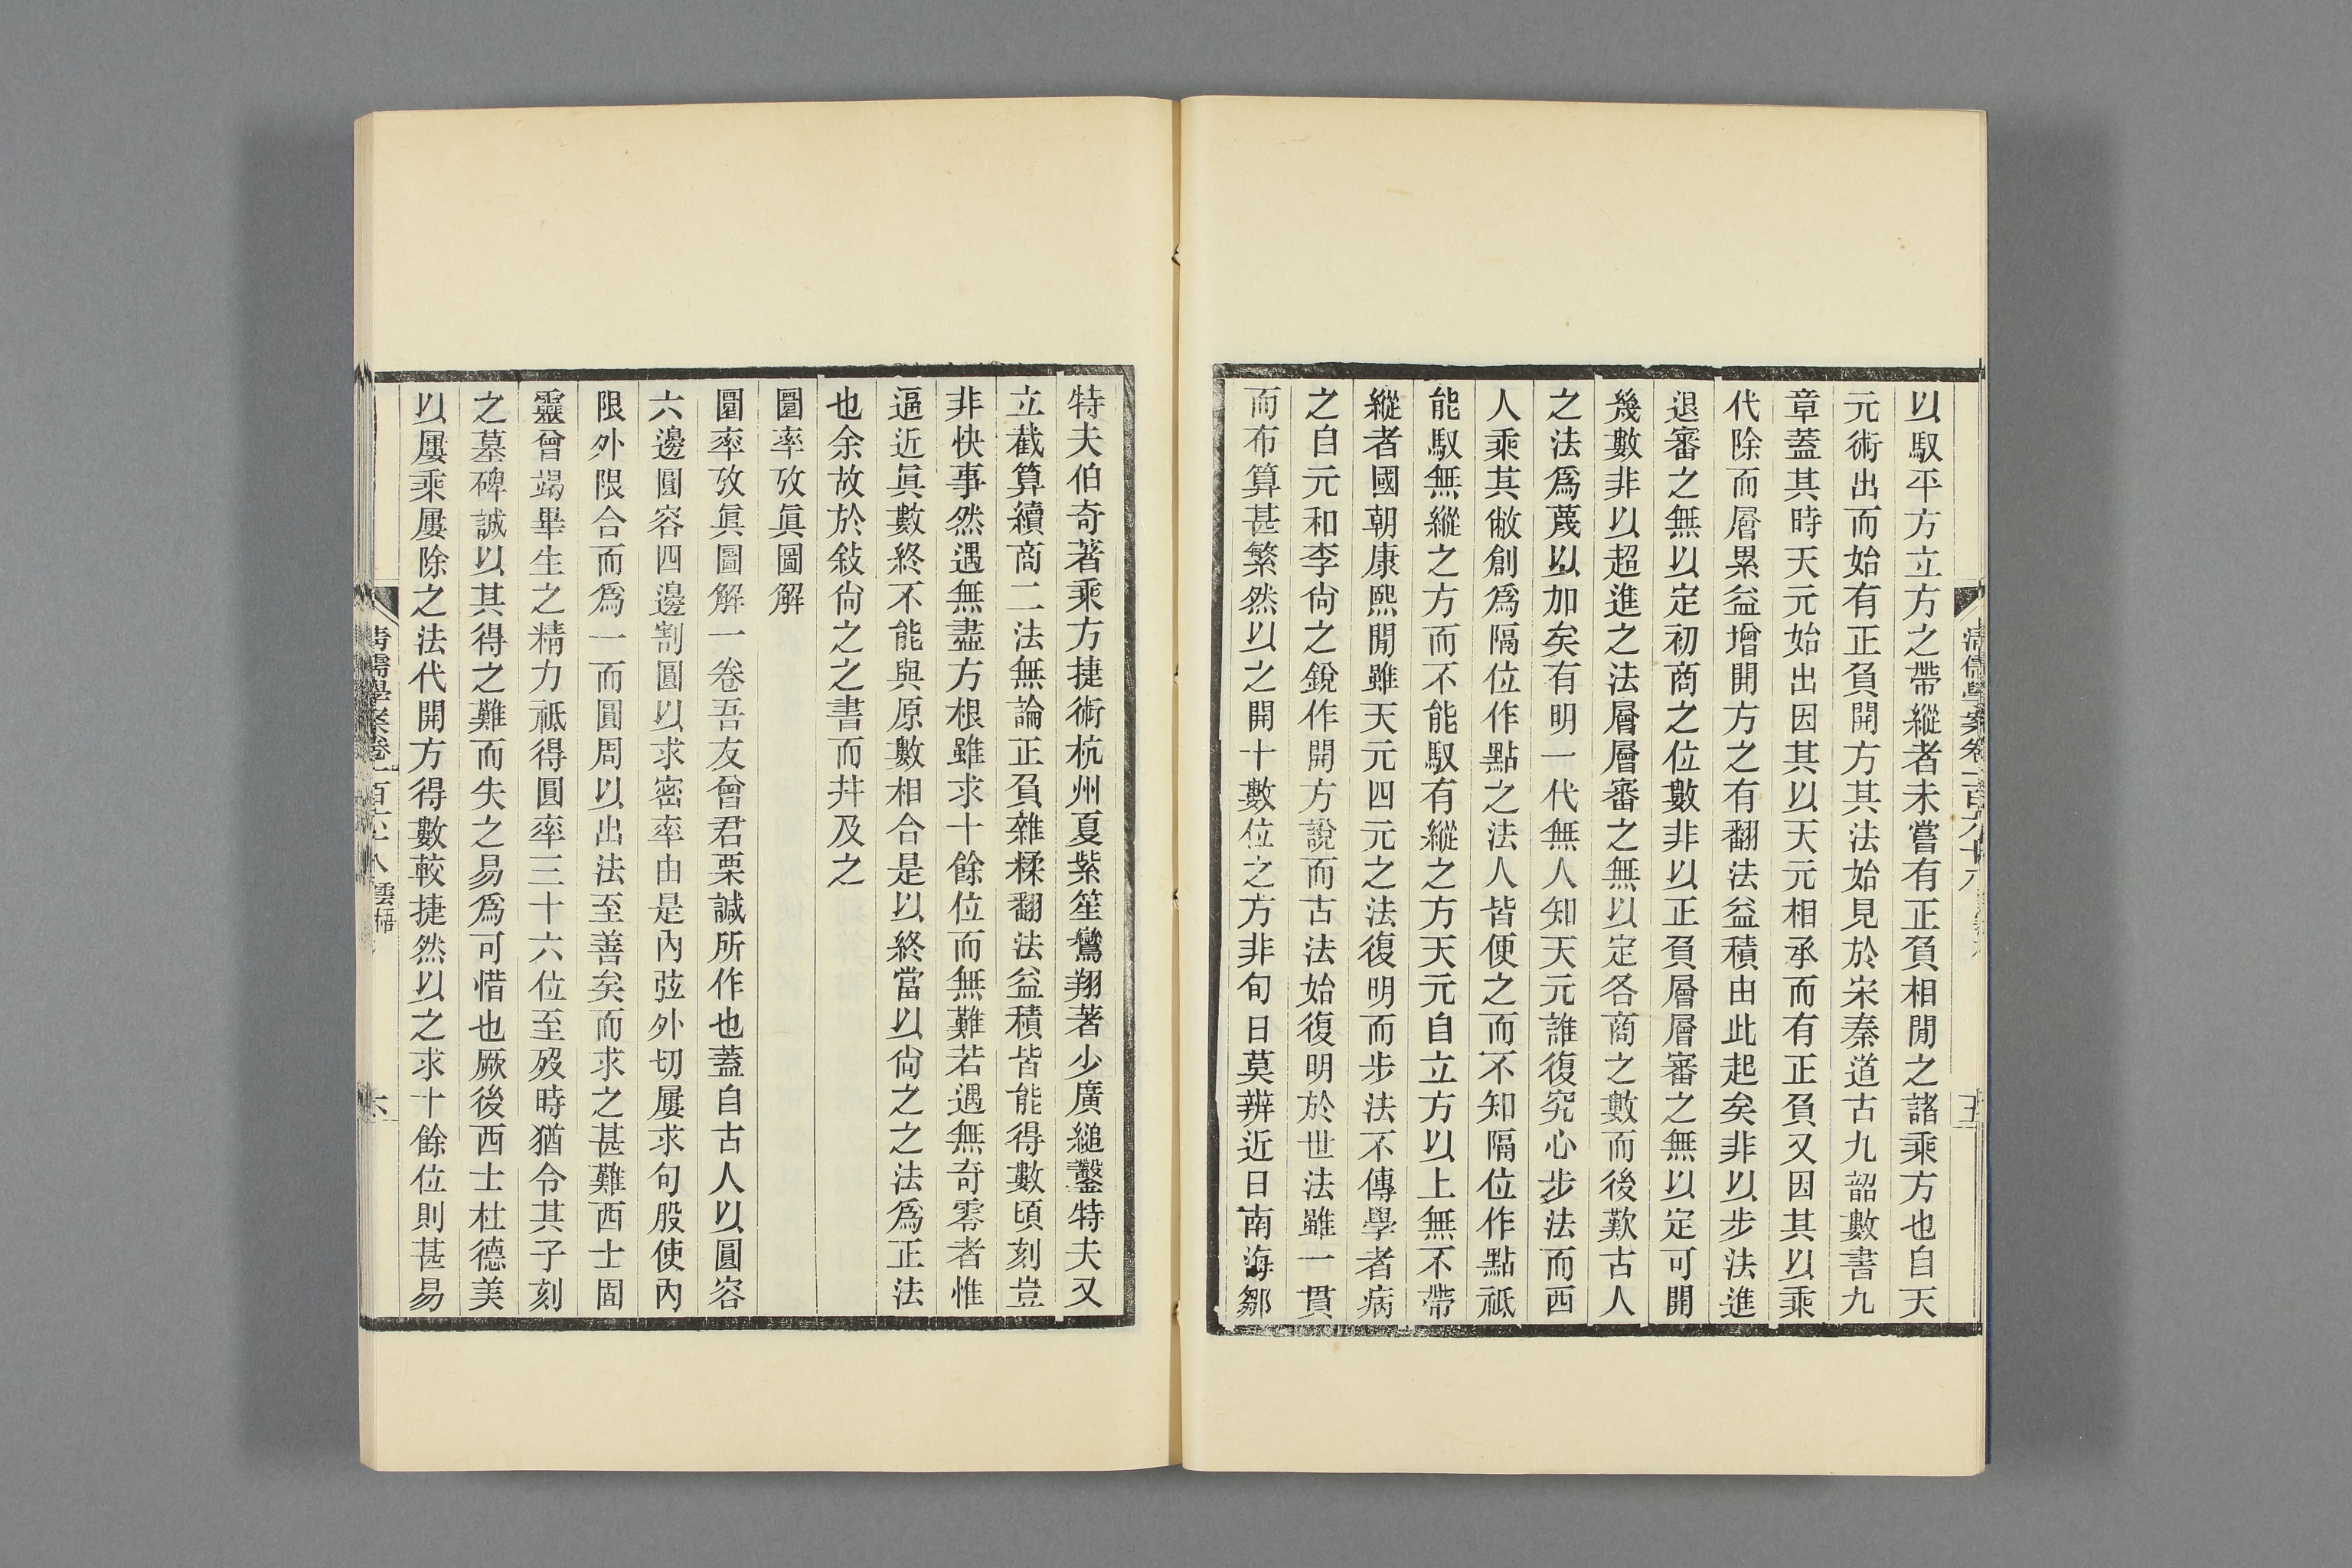 以馭平方立方之帶縱者未嘗有正負相閒之諸乘方也自天
元術出而始有正負開方其法始見於宋秦道古九韶數書九
章蓋其時天元始出因其以天元相承而有正負又因其以乘
代除而層累益增開方之有翻法益積由此起矣非以步法進
退審之無以定初商之位數非以正負層層審之無以定可開
幾數非以超進之法層層審之無以定各商之數而後歎古人
之法爲蔑以加矣有明一代無人知天元誰復究心步法而西
人乘其敝創爲隔位作點之法人皆便之而不知隔位作點祗
能馭無縱之方而不能馭有縱之方天元自立方以上無不帶
縱者國朝康熙閒雖天元四元之法復明而步法不傳學者病
之自元和李尙之銳作開方說而古法始復明於世法雖一貫
而布算甚繁然以之開十數位之方非旬日莫辨近日南海鄒
特夫伯奇著乘方捷術杭州夏紫笙鸞翔著少廣縋鑿特夫又
立截算續商二法無論正負雜糅翻法益積皆能得數頃刻豈
非快事然遇無盡方根雖求十餘位而無難若遇無奇零者惟
逼近眞數終不能與原數相合是以終當以尙之之法爲正法
也余故於敍尙之之書而幷及之
圜率攷眞圖解
圜率攷眞圖解一卷吾友曾君栗諴所作也蓋自古人以圓容
六邊圓容四邊割圓以求密率由是內弦外切屢求句股使內
限外限合而爲一而圓周以出法至善矣而求之甚難西士固
靈曾竭畢生之精力祗得圓率三十六位至歿時猶令其子刻
之墓碑誠以其得之難而失之易爲可惜也厥後西士杜德美
以屢乘屢除之法代開方得數較捷然以之求十餘位則甚易
清儒學案卷一百六十八
五
清儒學案卷一百六十八 雲梧
六